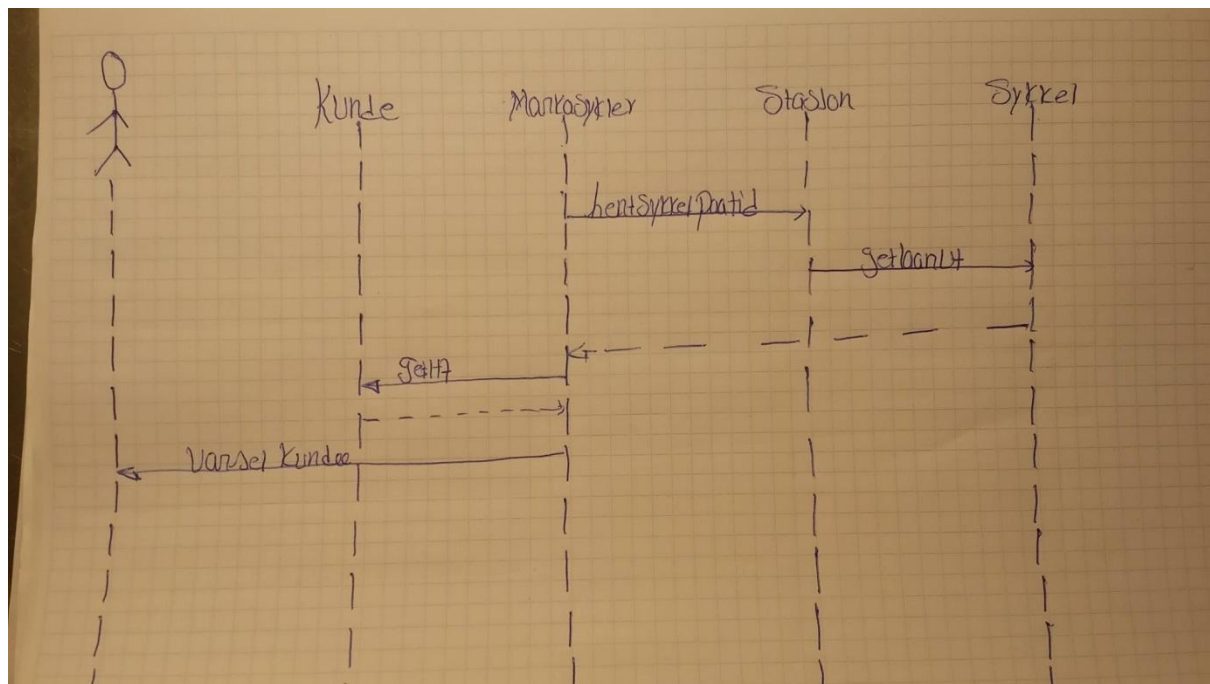 Kunde
Markasykler
Stasion
Sykkel
hentSykkelPaatid
getTlf
Varsel Kunde